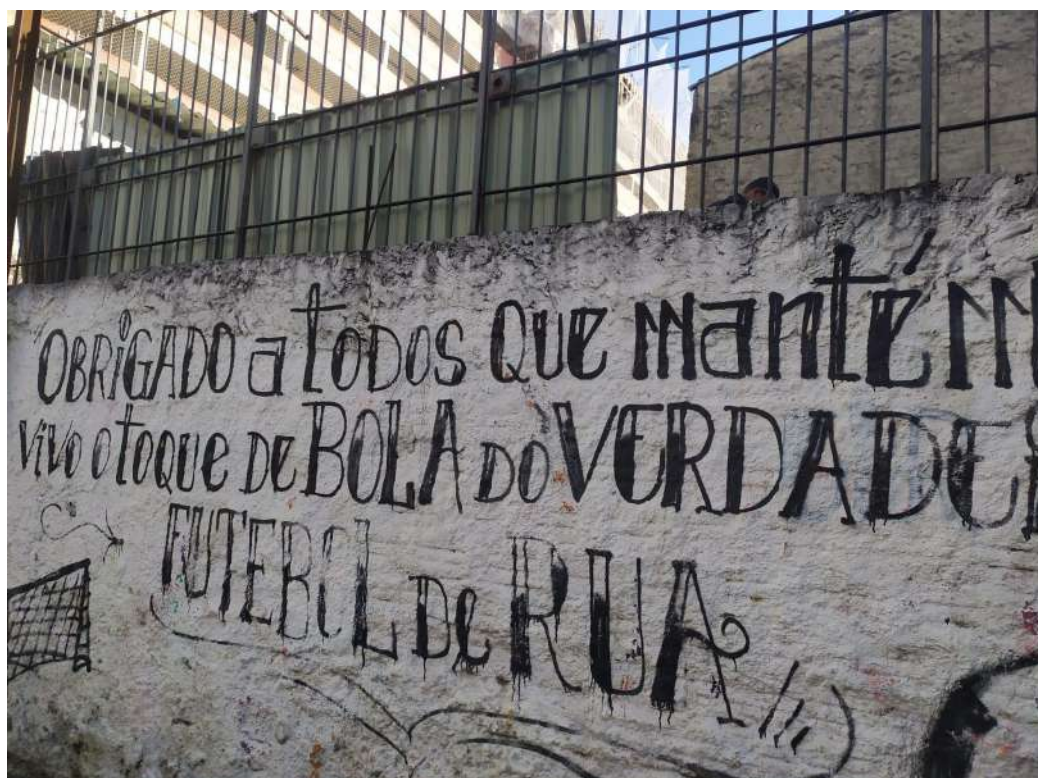 OBRiGADO a toDOS QUe mantém
vivo o toque De BOLA DO VERDADEI
FUTEBOL De RUA